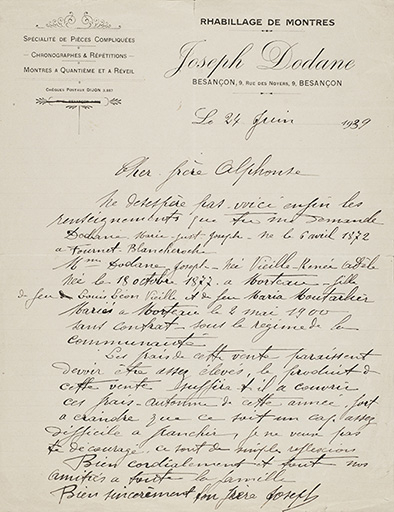 RHABILLAGE DE MONTRES
SPÉCIALITÉ DE PIÈCES COMPLIQUÉES
CHRONOGRAPHES & RÉPÉTITIONS
MONTRES A QUANTIÈME ET A RÉVEIL
CHÈQUES POSTAUX DIJON
Joseph Dodane
BESANÇON, 9, RUE DES NOYERS, 9, BESANÇON
Le 24 Juin 1939
Cher frère Alphonse
Ne désespère pas voici enfin les
renseignements que tu me demande
Dodane Marie Just Joseph - né le 6 avril 1872
a Fournet Blancheroche
Mme Dodane Joseph - Née Vieille Renée Adèle
Née le 18 octobre 1877 a Morteau fille
de feu Louis Léon Vieille et de feu Maria
Mariés a Morteau le 2 mai 1900
sans contrat sous le régime de la
communauté
Les frais de cette vente paraissent
devoir être assez élevés, le produit de
cette vente suffira t il a couvrir
ces frais - automne de cette année, fort
a craindre que ce soit un cap assez
difficile a franchir, je ne veux pas
te décourager ce sont de simples reflexions
Bien cordialement et tout nos
amitiés a toute la famille
Bien sincèrement ton frère Joseph